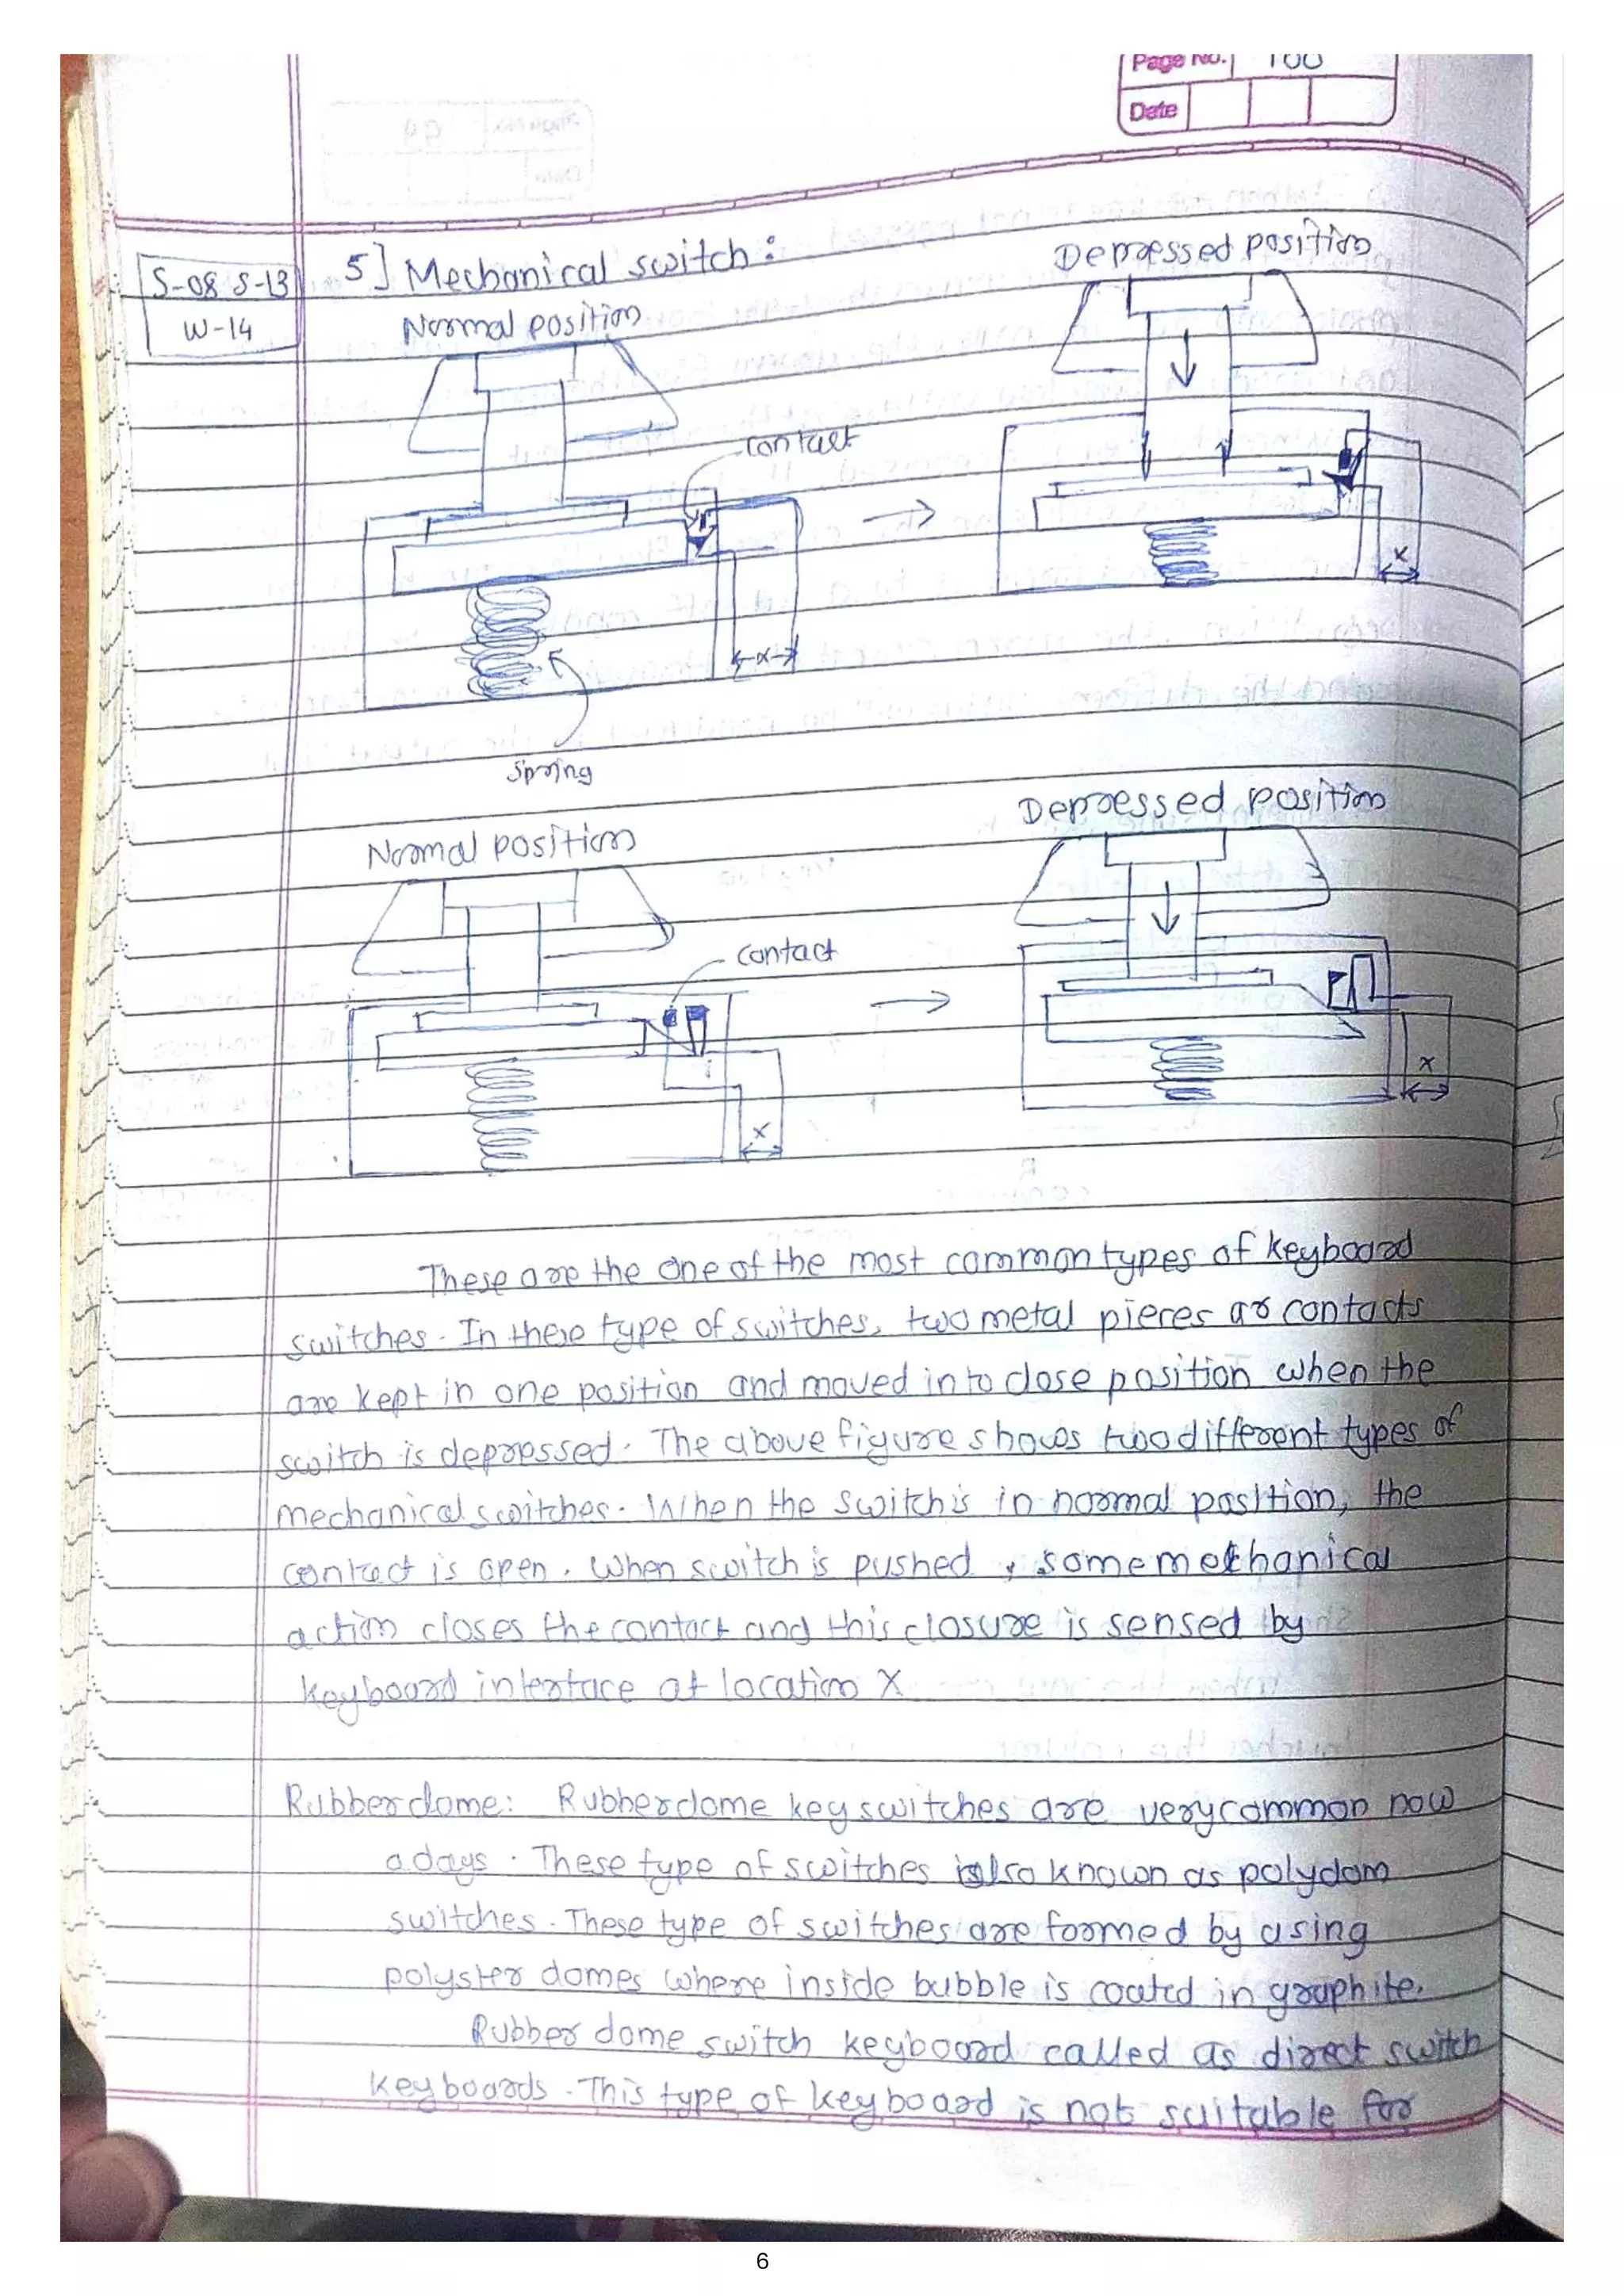 Page No. 100
Date
S-08 S-13
W-14
5] Mechanical switch:
Normal position
Depressed position
contact
x
x
spring
Normal position
Depressed position
contact
x
x
These are the one of the most common types of keyboard
switches. In these type of switches, two metal pieces or contacts
are kept in one position and moved in to close position when the
switch is depressed. The above figure shows two different types of
mechanical switches. When the switch is in normal position, the
contact is open. When switch is pushed, some mechanical
action closes the contact and this closure is sensed by
keyboard interface at location X
Rubber dome: Rubber dome key switches are very common now
a days. These type of switches is also known as polydom
switches. These type of switches are formed by using
polyster domes where inside bubble is coated in graphite.
Rubber dome switch keyboard called as direct switch
keyboards. This type of keyboard is not suitable for
6